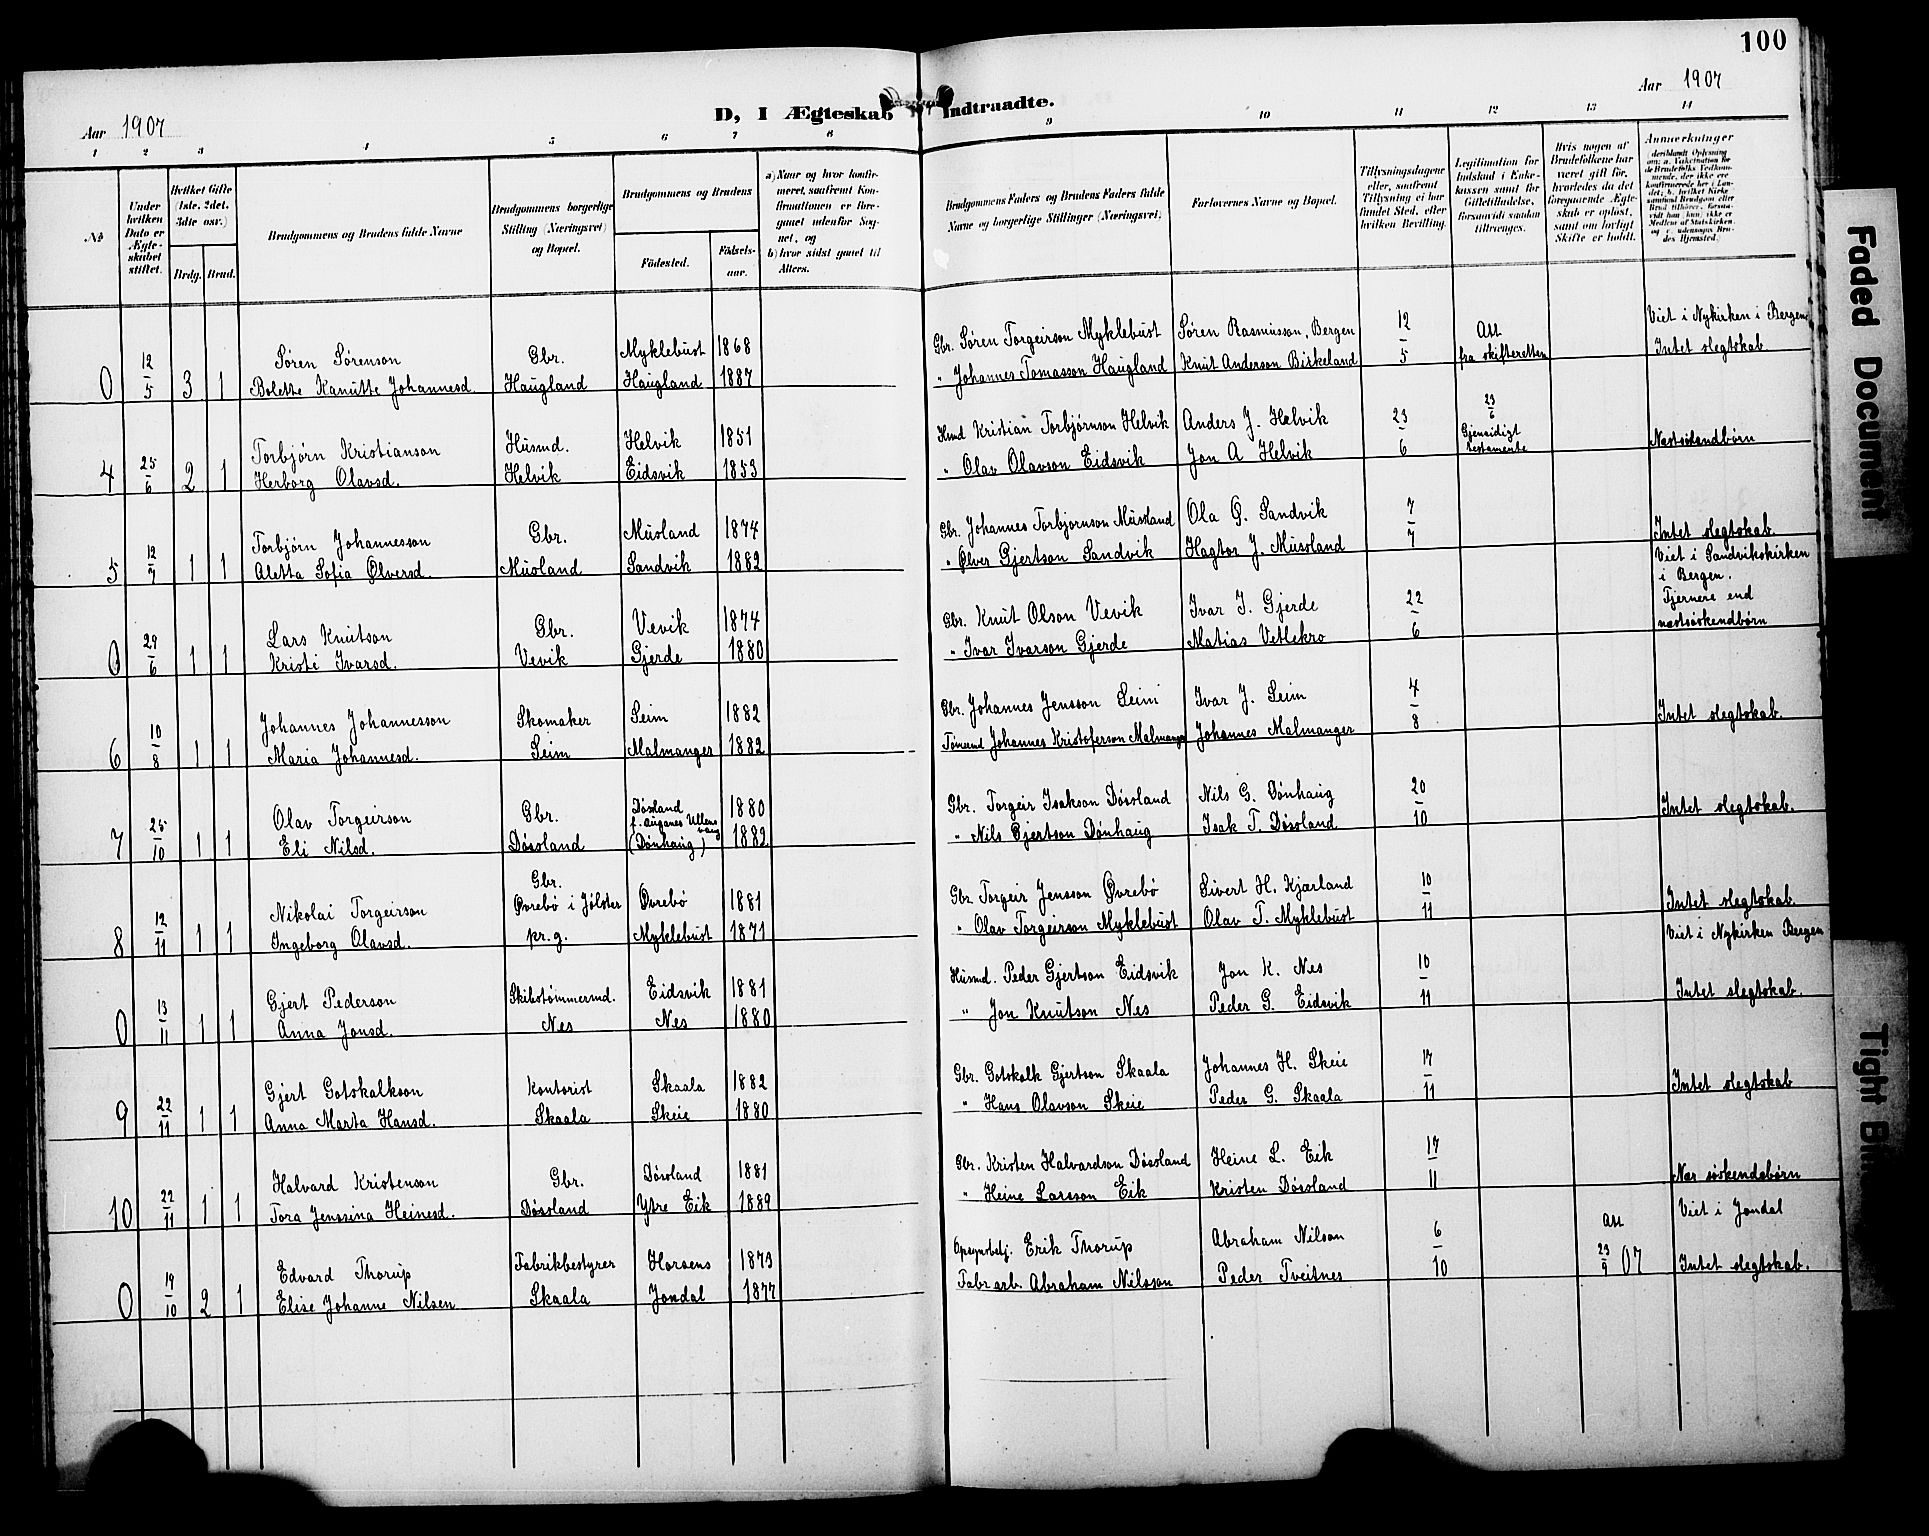 100
Aar 1907
D, I Ægteskab Indtraadte.
Aar 1907
1 2 3 4 5 6 7 8 9 10 11 12 13 14
No
Under hvilken Dato er Ægteskabet stiftet.
Hvilket Gifte (1ste, 2det, 3die osv.)
Brdg. Brud.
Brudgommens og Brudens fulde Navne
Brudgommens borgerlige Stilling (Næringsvei) og Bopæl.
Brudgommens og Brudens
Fødested.
Fødselsaar.
a) Naar og hvor konfirmeret, saafremt Konfirmationen er foregaaet udenfor Sognet, og
b) hvor sidst gaaet til Alters.
Brudgommens Faders og Brudens Faders fulde Navne og borgerlige Stillinger (Næringsvei).
Forlovernes Navne og Bopæl.
Tillysningsdagene eller, saafremt Tillysning ei har fundet Sted, efter hvilken Bevilling.
Legitimation for Indskud i Enkekassen samt for Giftetilladelse, forsaavidt saadan tiltrænges.
Hvis nogen af Brudefolkene har været gift før, hvorledes da det foregaaende Ægteskab er opløst, samt om lovligt Skifte er holdt.
Anmerkninger
(deriblandt Oplysning om: a. Vakcination for de Brudefolks Vedkommende, der ikke ere konfirmerede her i Landet; b. hvilket Kirkesamfund Brudgom eller Brud tilhører, forsaavidt han (hun) ikke er Medlem af Statskirken, og c. udensogns Brudes Hjemsted)
0 12/5 3 1 Søren Sørenson Gbr. Myklebust 1868 Gbr. Søren Torgeirson Myklebust Søren Rasmusson, Bergen 12/5 Att Viet i Nykirken i Bergen
Bolette Kanutte Johannesd. Haugland Haugland 1887 " Johannes Tomasson Haugland Knut Anderson Birkeland fra skifteretten Intet slegtskab
4 25/6 2 1 Torbjørn Kristianson Husmd. Helvik 1851 Husmd Kristian Torbjørnson Helvik Anders J. Helvik 23/6 23/6 Gjensidigt testamente Næstsøskendbørn
Herborg Olavsd. Helvik Eidsvik 1853 " Olav Olavson Eidsvik Jon A Helvik
5 12/7 1 1 Torbjørn Johannesson Gbr. Musland 1874 Gbr. Johannes Torbjørnson Mussland Ola Ø. Sandvik 7/7 Intet slegtskab.
Aletta Sofia Ølversd. Musland Sandvik 1882 " Ølver Gjertson Sandvik Hagtor J. Mussland
Viet i Sandvikskirken i Bergen.
0 29/6 1 1 Lars Knutson Gbr. Vevik 1874 Gbr. Knut Olson Vevik Ivar I. Gjerde 22/6 Fjernere end
Kristi Ivarsd. Vevik Gjerde 1880 " Ivar Ivarson Gjerde Matias Vetlekro næstsøskendbørn
6 10/8 1 1 Johannes Johannesson Skomaker Seim 1882 Gbr. Johannes Jensson Seim Ivar J. Seim 4/8 Intet slegtskab.
Maria Johannesd. Seim Malmanger 1882 Tømmermd Johannes Kristoferson Malmanger Johannes Malmanger
7 25/10 1 1 Olav Torgeirson Gbr. Døssland 1880 Gbr. Torgeir Isakson Døssland Nils G. Dønhaug 20/10 Intet slegtskab.
Eli Nilsd. Døssland f. Auganes Ullensvang (Dønhaug) 1882 " Nils Gjertson Dønhaug Isak T. Døssland
8 12/11 1 1 Nikolai Torgeirson Gbr. Øvrebø i Jølster Øvrebø 1881 Gbr Torgeir Jensson Øvrebø Sivert H. Kjærland 10/11 Intet slegtskab.
Ingeborg Olavsd. pr.g. Myklebust 1871 " Olav Torgeirson Myklebust Olav T. Myklebust Viet i Nykirken Bergen
0 13/11 1 1 Gjert Pederson Skibstømmermd. Eidsvik 1881 Husmd. Peder Gjertson Eidsvik Jon K. Nes 10/11 Intet slegtskab.
Anna Jonsd. Nes Nes 1880 " Jon Knutson Nes Peder G. Eidsvik
9 22/11 1 1 Gjert Gotskalkson Kontorist Skaala 1882 Gbr. Gotskalk Gjertson Skaala Johannes H. Skeie 17/11 Intet slegtskab
Anna Marta Hansd. Skaala Skeie 1880 " Hans Olavson Skeie Peder G. Skaala
10 22/11 1 1 Halvard Kristenson Gbr. Døssland 1881 Gbr. Kristen Halvardson Døssland Heine L. Eik 17/11 Nær søskendebørn
Tora Jenssina Heinesd. Døssland Ytre Eik 1889 " Heine Larsson Eik Kristen Døssland
Viet i Jondal
0 19/10 2 1 Edvard Thorup Fabrikbestyrer Horsens 1873 Opsynsbetj. Erik Thorup Abraham Nilson 6/10 Att 23/9 07 Intet slegtskab.
Elise Johanne Nilsen Skaala Jondal 1877 Fabr arb. Abraham Nilsson Peder Tveitnes
Faded Document
Tight Bi